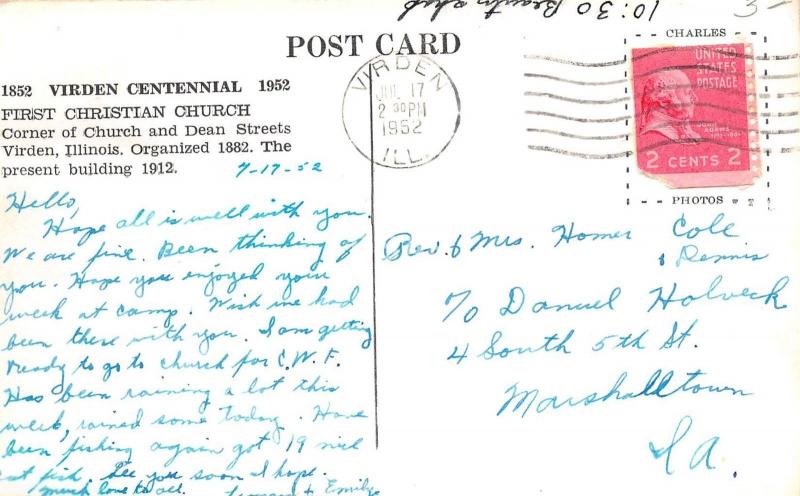 10:30 Beauty shop
3-
POST CARD
1852 VIRDEN CENTENNIAL 1952
FIRST CHRISTIAN CHURCH
Corner of Church and Dean Streets
Virden, Illinois. Organized 1882. The
present building 1912.
7-17-52
Hello,
Hope all is well with you.
We are fine. Been thinking of
you. Hope you enjoyed your
week at camp. Wish we had
been there with you. I am getting
ready to go to church for C.W.F.
Has been raining a lot this
week, rained some today. Have
been fishing again got 19 nice
cat fish. See you soon I hope.
Much love to all. & Emily
VIRDEN
JUL 17
2 30 PM
1952
ILL.
CHARLES
UNITED
STATES
POSTAGE
JOHN
ADAMS
2 CENTS 2
PHOTOS
Rev. & Mrs. Homer Cole
& Dennis
c/o Daniel Holveck
4 South 5th St.
Marshalltown
IA.